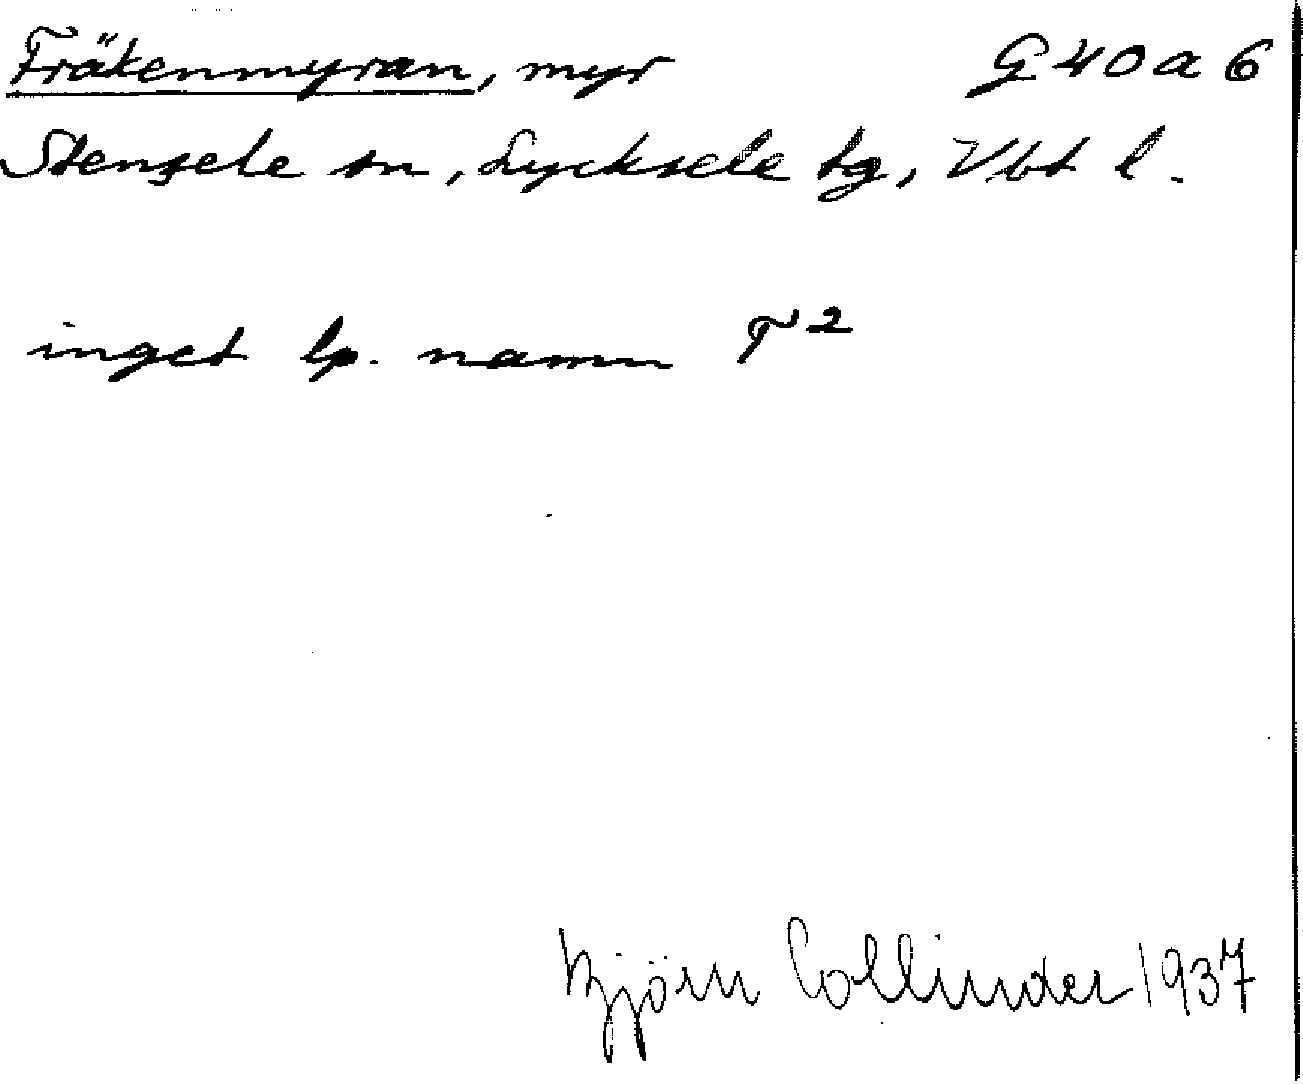 Fräkenmyran, myr G 40 a 6
Stensele sn, Lycksele tg, Vbt l.
inget lp. namn T²
Björn Collinder 1937